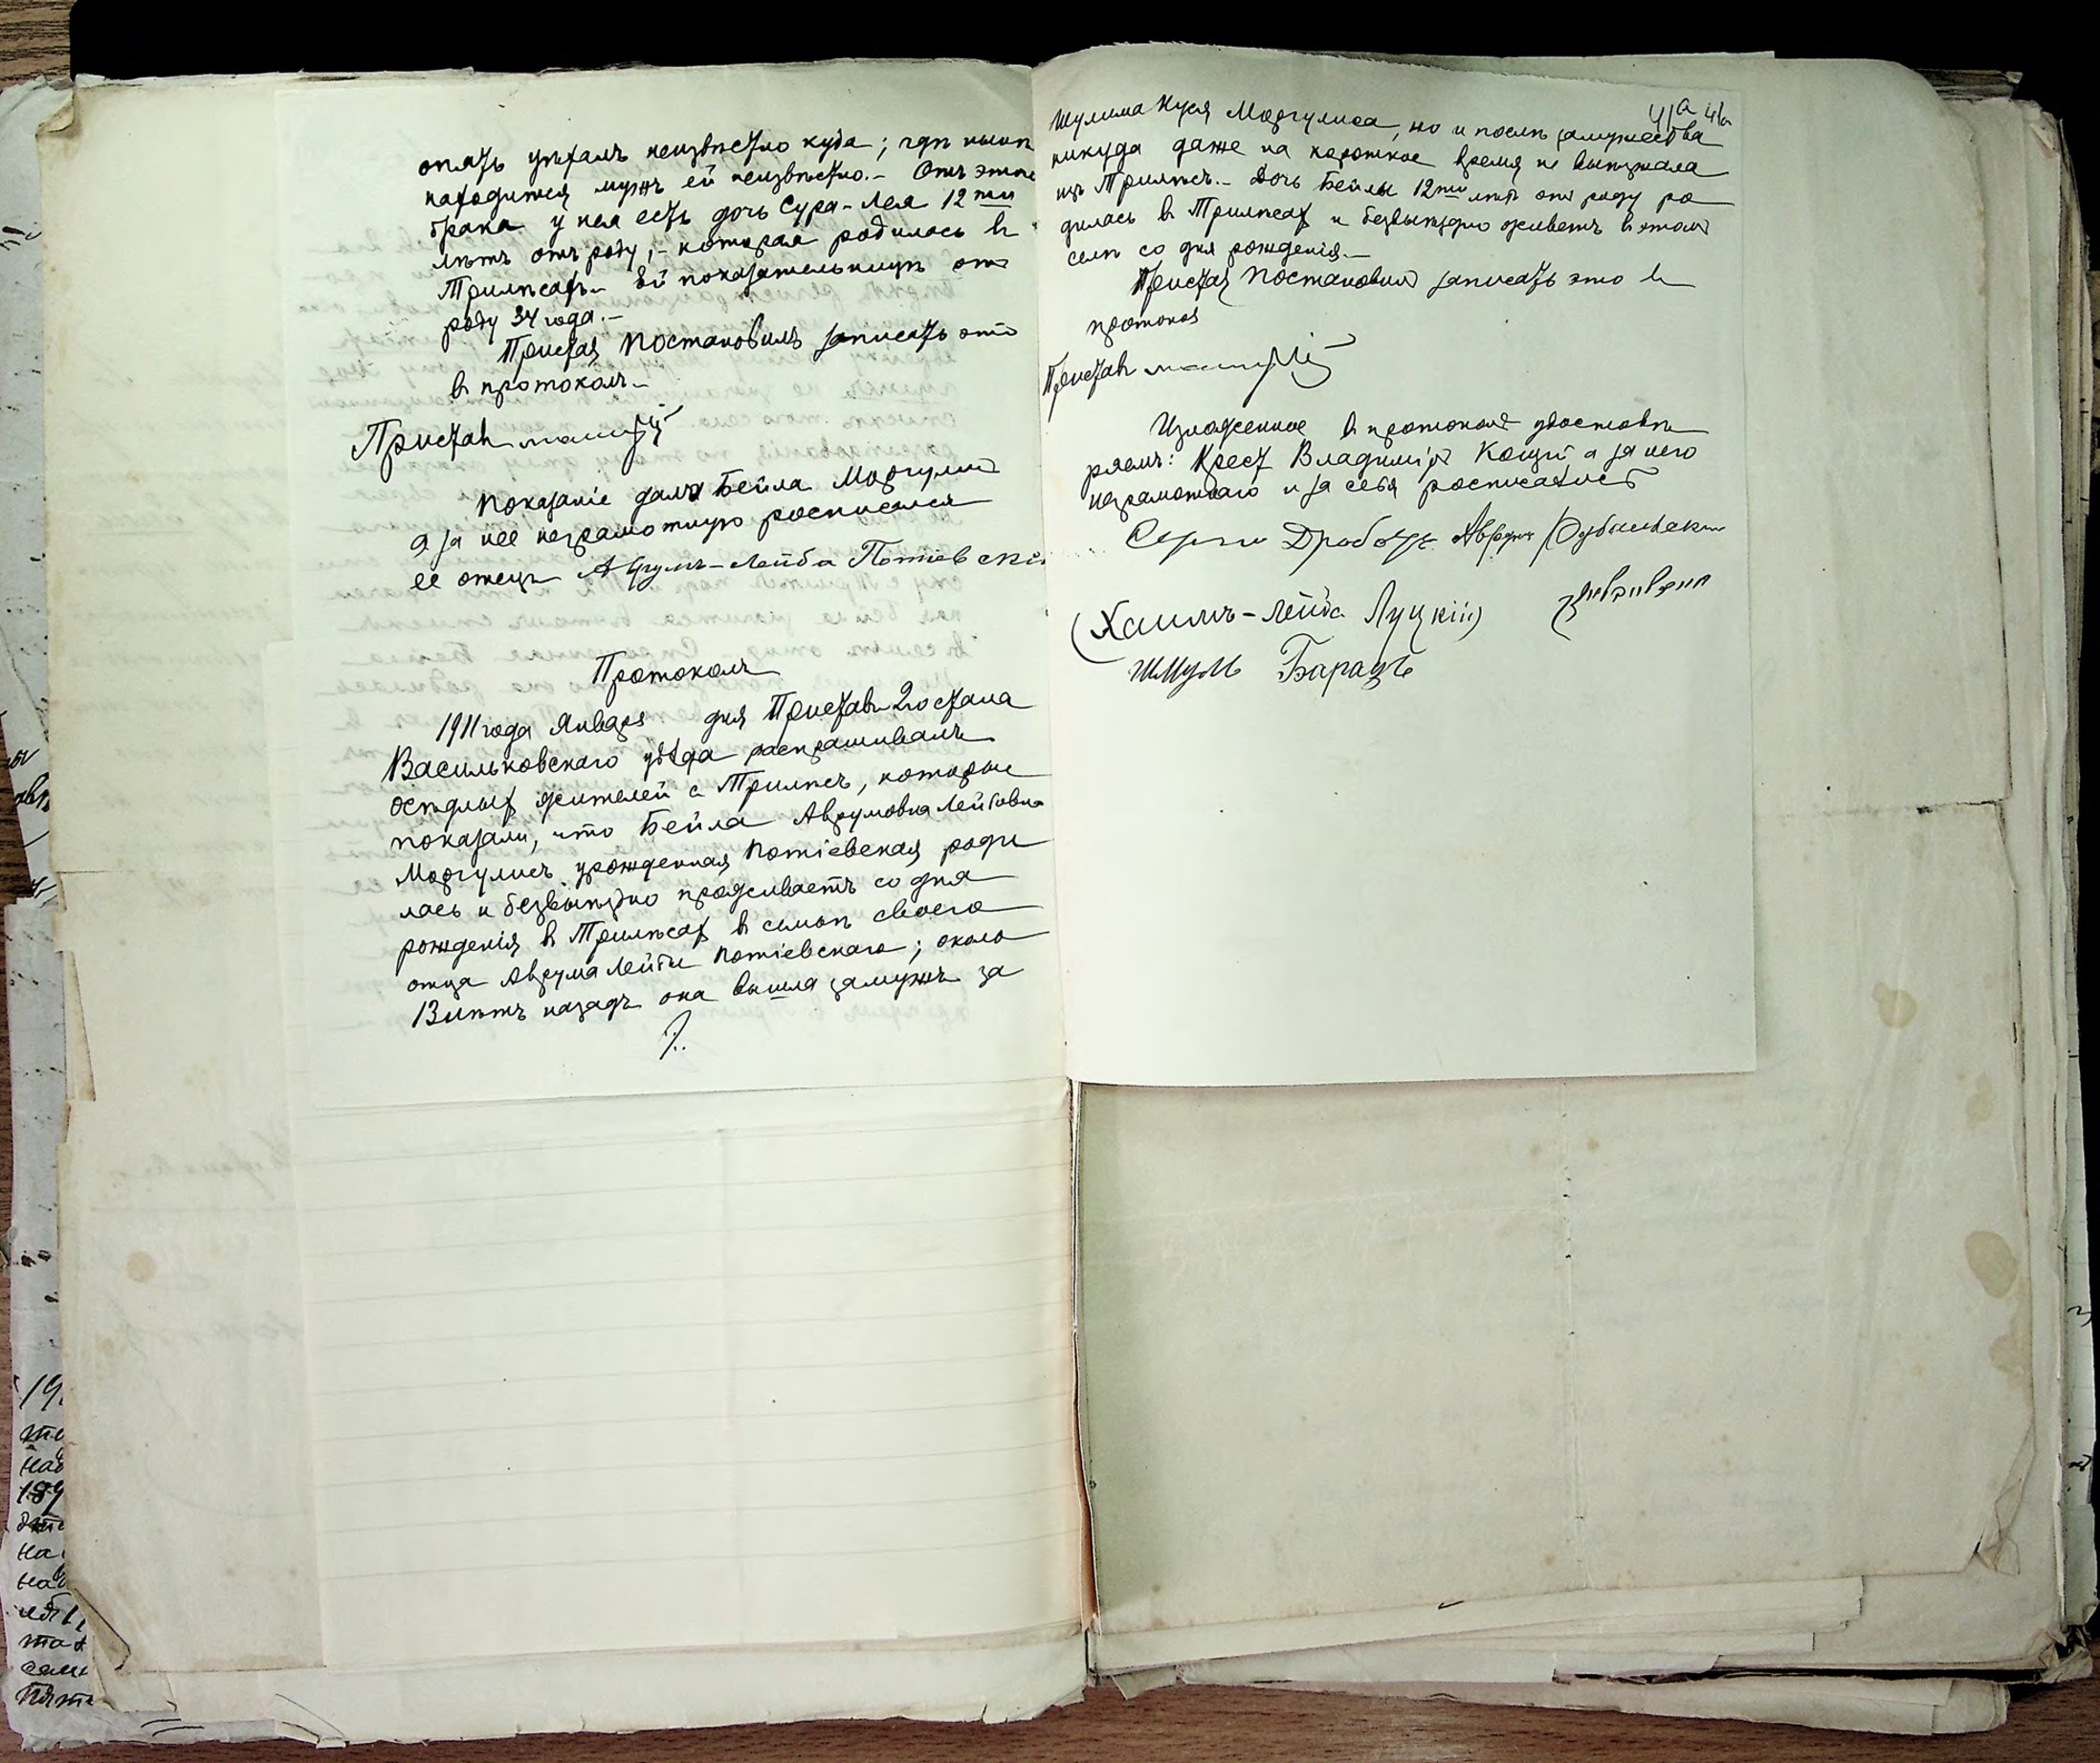 опять уѣхалъ неизвѣстно куда; гдѣ нынѣ
находится мужъ ей неизвѣстно.- Отъ этого
брака у нея есть дочь Сура-Лея 12ти
лѣтъ отъ роду,- которая родилась въ
Трилѣсахъ.- Ей показательницѣ отъ
роду 34 года.-
Приставъ постановилъ записать это
в протоколъ.-
Приставъ
Показаніе дала Бейла Моргулисъ
а за нее неграмотную росписался
ее отецъ Аврумъ-Лейба Потіевскій
Протоколъ
1911 года Января дня Приставъ 2го стана
Васильковскаго уѣзда распрашивалъ
осѣдлыхъ жителей с Трилѣсъ, которые
показали, что Бейла Аврумовна Лейбовна
Моргулисъ урожденная Потіевская роди
лась и безвыѣздно проживаетъ со дня
рожденія въ Трилѣсахъ въ семьѣ своего
отца Аврума Лейбы Потіевскаго; около
13 лѣтъ назадъ она вышла замужъ за
41а 41а
Шулима Нуся Моргулиса, но и послѣ замужества
никуда даже на короткое время не выѣзжала
изъ Трилѣсъ.- Дочь Бейлы 12ти лѣтъ отъ роду ро
дилась въ Трилѣсахъ и безвыѣздно живетъ въ этомъ
селѣ со дня рожденія.-
Приставъ постановилъ записать это въ
протоколъ
Приставъ
Изложенное въ протоколѣ удостовѣ
ряемъ: Крест Владиміръ Коцый а за него
неграмотнаго и за себя росписались
Хаимъ-Лейба Луцкій
Шмуль Барацъ